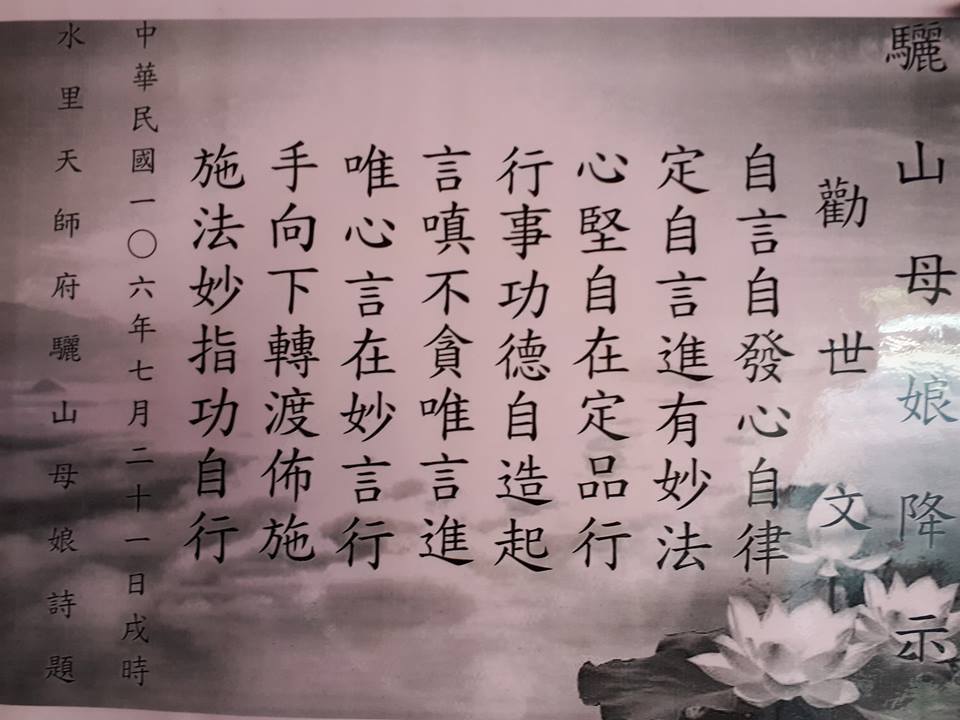 驪山母娘降示
勸世文
自言自發心自律
定自言進有妙法
心堅自在定品行
行事功德自造起
言嗔不貪唯言進
唯心言在妙言行
手向下轉渡佈施
施法妙指功自行
中華民國一〇六年七月二十一日戌時
水里天師府驪山母娘詩題